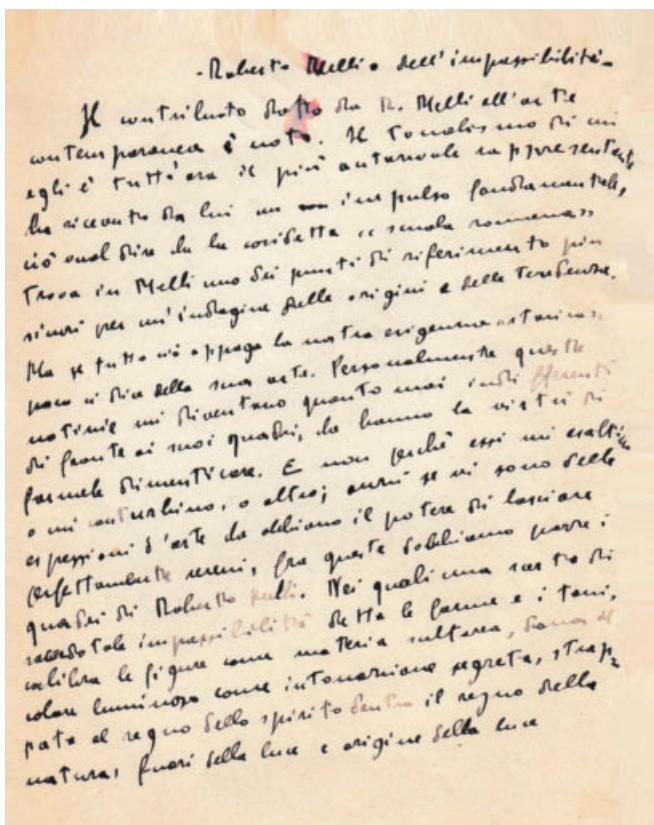 - Roberto Melli o dell'impassibilità -
Il contributo dato da R. Melli all'arte
contemporanea è noto. Il Tonalismo di cui
egli è tutt'ora il più autorevole rappresentante
ha ricevuto da lui un impulso fondamentale,
ciò vuol dire che la cosidetta "scuola romana"
trova in Melli uno dei punti di riferimento più
sicuri per un'indagine delle origini e delle tendenze.
Ma se tutto ciò appaga la nostra esigenza storica,
poco ci dice della sua arte. Personalmente queste
notizie mi diventano quanto mai indifferenti
di fronte ai suoi quadri, che hanno la virtù di
farmele dimenticare. E non perché essi mi esaltino
o mi conturbino, o altro; anzi se vi sono delle
espressioni d'arte che abbiano il potere di lasciare
perfettamente sereni, fra queste dobbiamo porre i
quadri di Roberto Melli. Nei quali una sorta di
sacerdotale impassibilità detta le forme e i toni,
calibra le figure come materia
colore luminoso come intonazione segreta, strap=
pata al regno dello spirito dentro il regno della
natura, fuori della luce e origine della luce